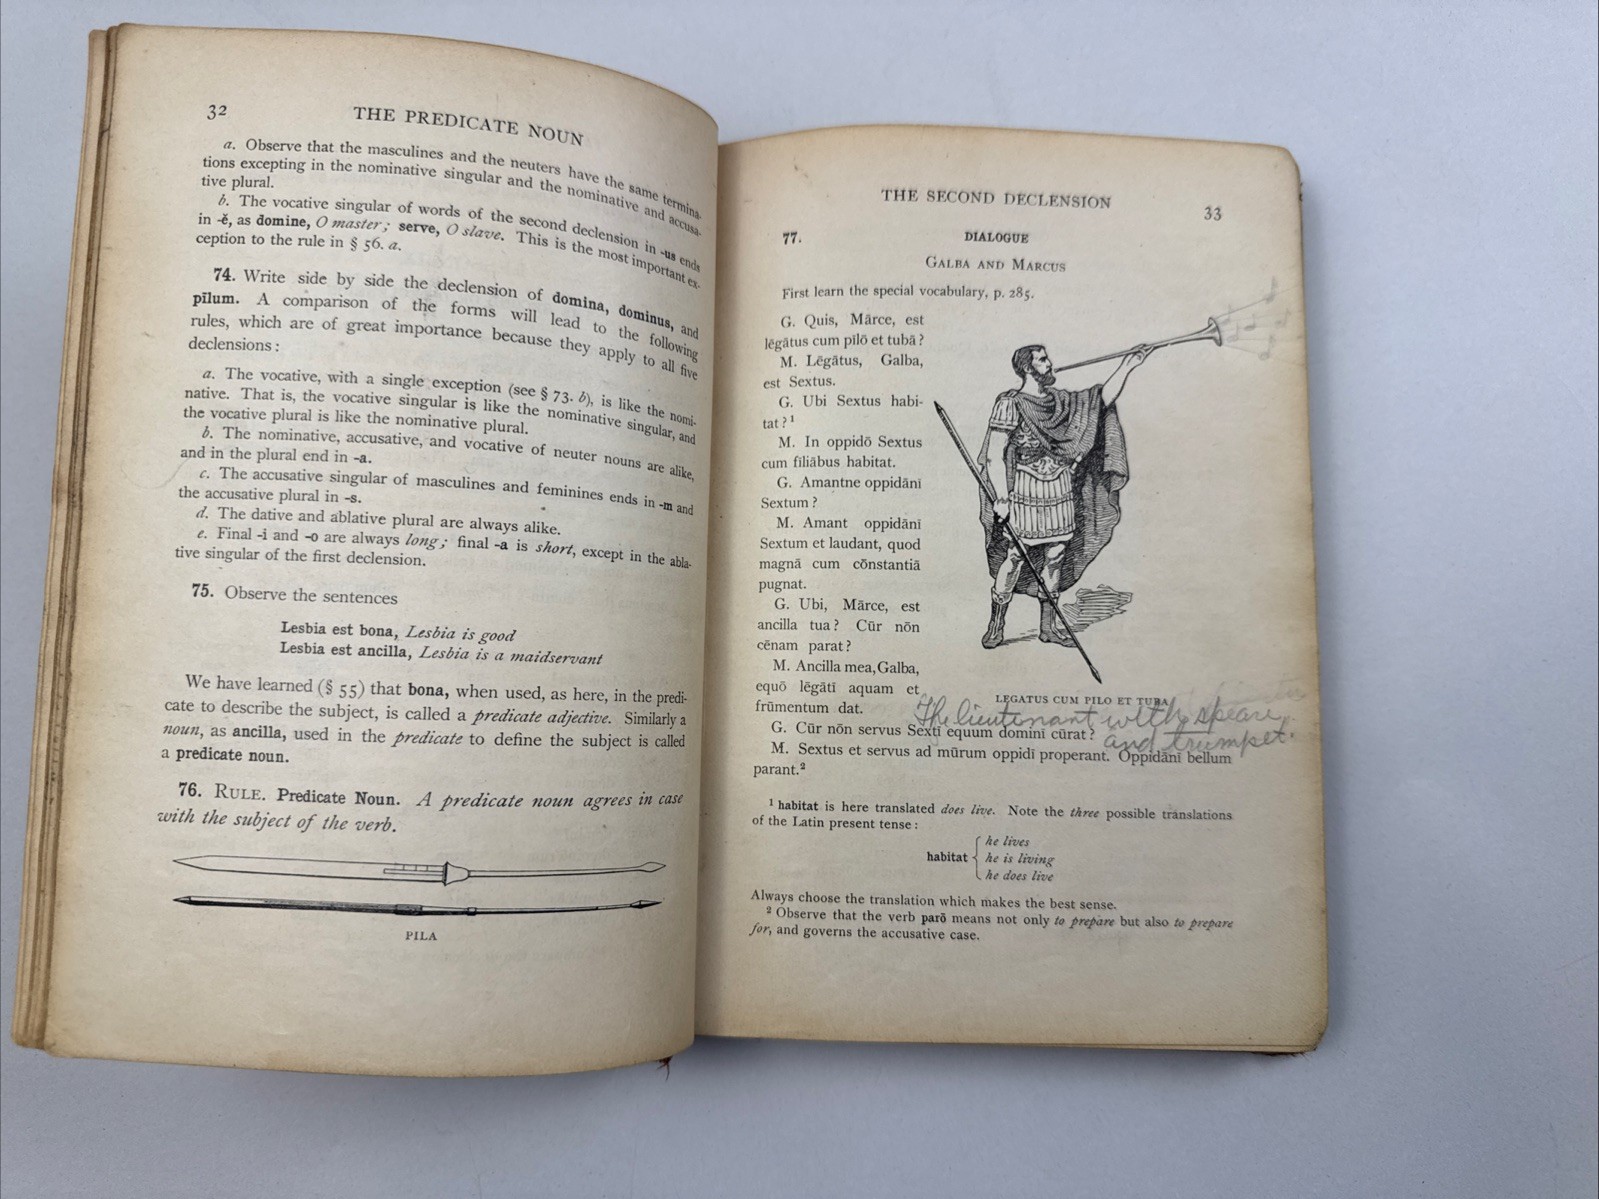 32
THE PREDICATE NOUN
a. Observe that the masculines and the neuters have the same termina-
tions excepting in the nominative singular and the nominative and accusa-
tive plural.
b. The vocative singular of words of the second declension in -us ends
in -ĕ, as domine, O master; serve, O slave. This is the most important ex-
ception to the rule in § 56. a.
74. Write side by side the declension of domina, dominus, and
pīlum. A comparison of the forms will lead to the following
rules, which are of great importance because they apply to all five
declensions:
a. The vocative, with a single exception (see § 73. b), is like the nomi-
native. That is, the vocative singular is like the nominative singular, and
the vocative plural is like the nominative plural.
b. The nominative, accusative, and vocative of neuter nouns are alike,
and in the plural end in -a.
c. The accusative singular of masculines and feminines ends in -m and
the accusative plural in -s.
d. The dative and ablative plural are always alike.
e. Final -i and -o are always long; final -a is short, except in the abla-
tive singular of the first declension.
75. Observe the sentences
Lesbia est bona, Lesbia is good
Lesbia est ancilla, Lesbia is a maidservant
We have learned (§ 55) that bona, when used, as here, in the predi-
cate to describe the subject, is called a predicate adjective. Similarly a
noun, as ancilla, used in the predicate to define the subject is called
a predicate noun.
76. RULE. Predicate Noun. A predicate noun agrees in case
with the subject of the verb.
PILA
THE SECOND DECLENSION
33
77.
DIALOGUE
GALBA AND MARCUS
First learn the special vocabulary, p. 285.
G. Quis, Mārce, est
lēgātus cum pīlō et tubā?
M. Lēgātus, Galba,
est Sextus.
G. Ubi Sextus habi-
tat?¹
M. In oppidō Sextus
cum fīliābus habitat.
G. Amantne oppidānī
Sextum?
M. Amant oppidānī
Sextum et laudant, quod
magnā cum cōnstantiā
pugnat.
G. Ubi, Mārce, est
ancilla tua? Cūr nōn
cēnam parat?
M. Ancilla mea, Galba,
equō lēgātī aquam et
frūmentum dat.
LEGATUS CUM PILO ET TUBA
The lieutenant with speare
and trumpet.
G. Cūr nōn servus Sextī equum dominī cūrat?
M. Sextus et servus ad mūrum oppidī properant. Oppidānī bellum
parant.²
¹ habitat is here translated does live. Note the three possible translations
of the Latin present tense:
he lives
habitat { he is living
he does live
Always choose the translation which makes the best sense.
² Observe that the verb parō means not only to prepare but also to prepare
for, and governs the accusative case.